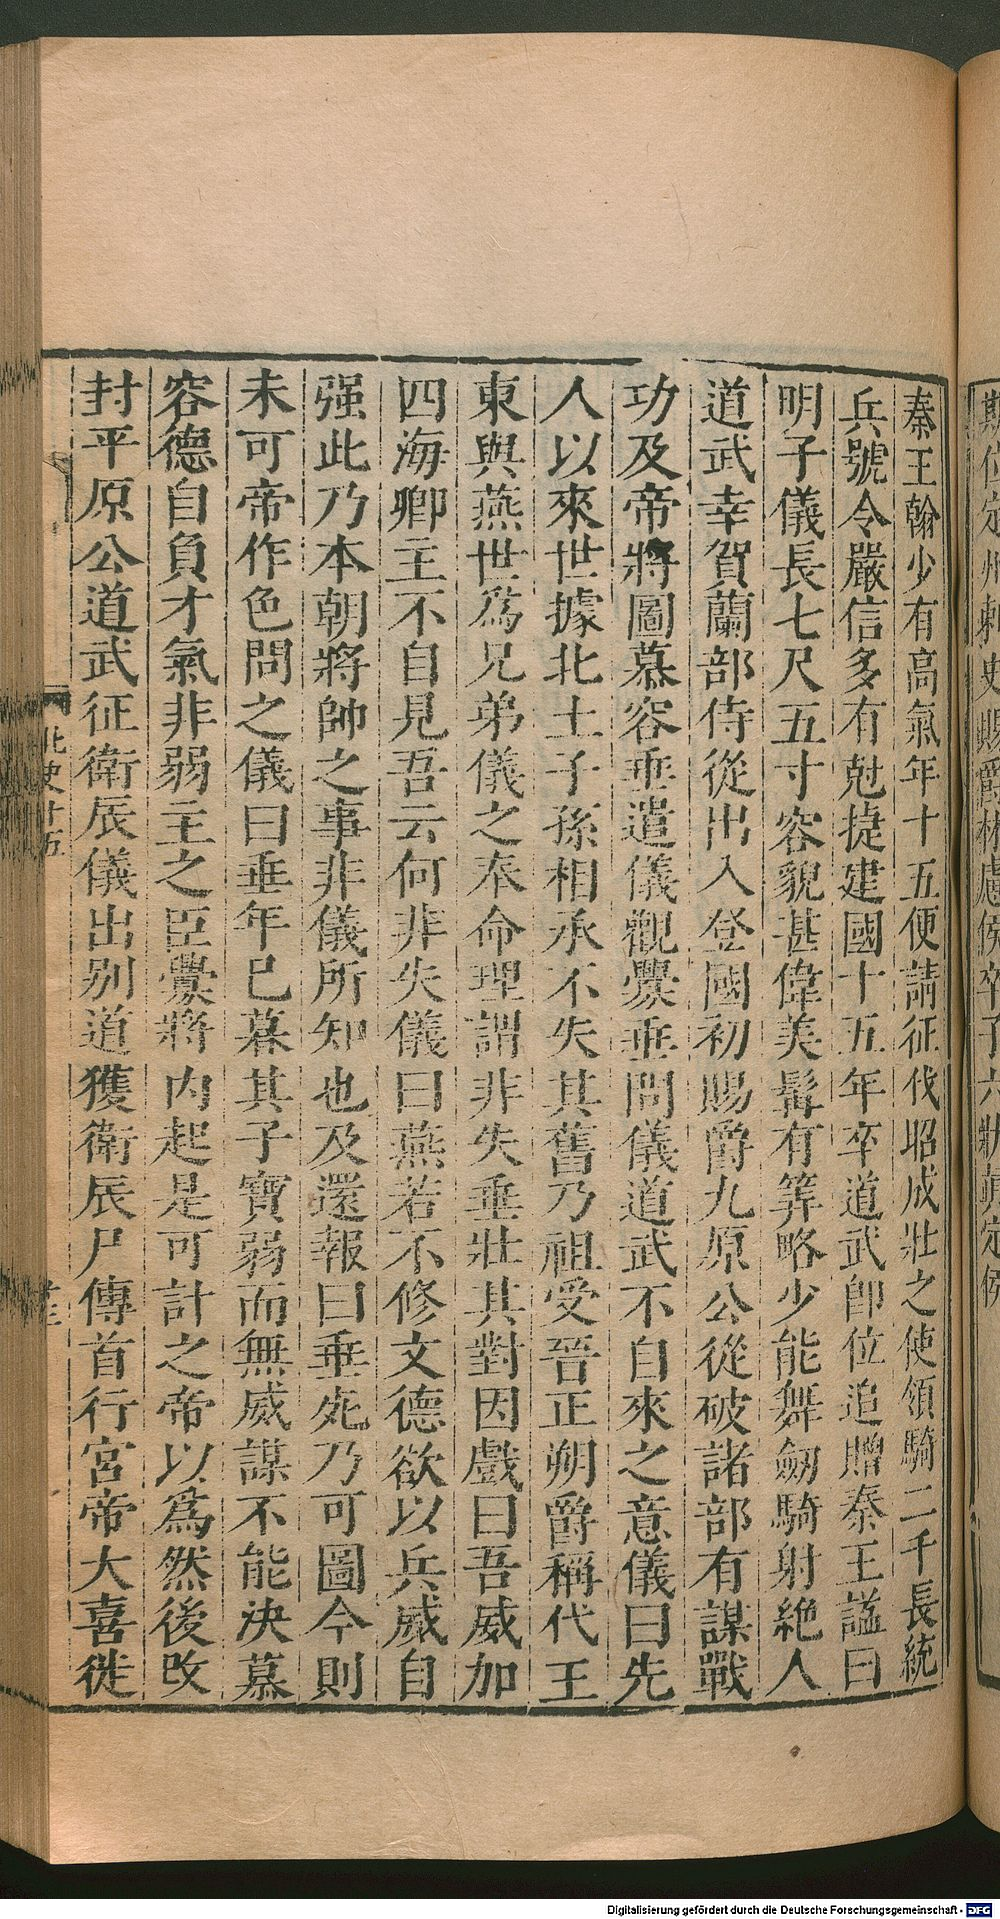 斯位定州刺史賜爵林慮侯卒子六狀真定侯
秦王翰少有高氣年十五便請征伐昭成壯之使領騎二千長統
兵號令嚴信多有尅捷建國十五年卒道武即位追贈秦王謚曰
明子儀長七尺五寸容貌甚偉美髯有筭略少能舞劒騎射絶人
道武幸賀蘭部侍從出入登國初賜爵九原公從破諸部有謀戰
功及帝將圖慕容垂遣儀觀釁垂問儀道武不自來之意儀曰先
人以來世據北土子孫相承不失其舊乃祖受晉正朔爵稱代王
東與燕世爲兄弟儀之奉命理謂非失垂壯其對因戲曰吾威加
四海卿主不自見吾云何非失儀曰燕若不修文德欲以兵威自
强此乃本朝將帥之事非儀所知也及還報曰垂死乃可圖今則
未可帝作色問之儀曰垂年已暮其子寶弱而無威謀不能決慕
容德自負才氣非弱主之臣釁將内起是可計之帝以爲然後改
封平原公道武征衛辰儀出別道獲衛辰尸傳首行宮帝大喜徙
北史十五
Digitalisierung gefördert durch die Deutsche Forschungsgemeinschaft - DFG